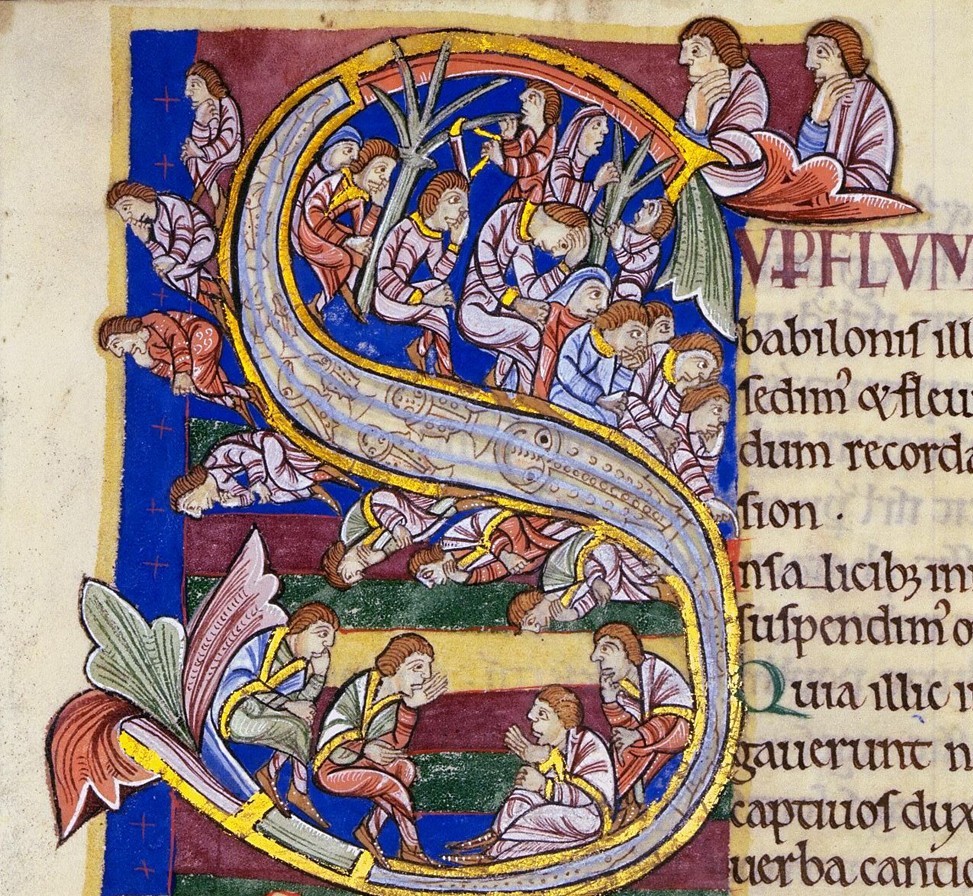 SVPFLVM
babiloniſ ill
ſedimꝰ &fleu
dum recorda
ſion ·
nſalicibꝫ in
ſuſpendimꝰ o
Quia illic
gauerunt n
captiuoſ dux
uerba cantic